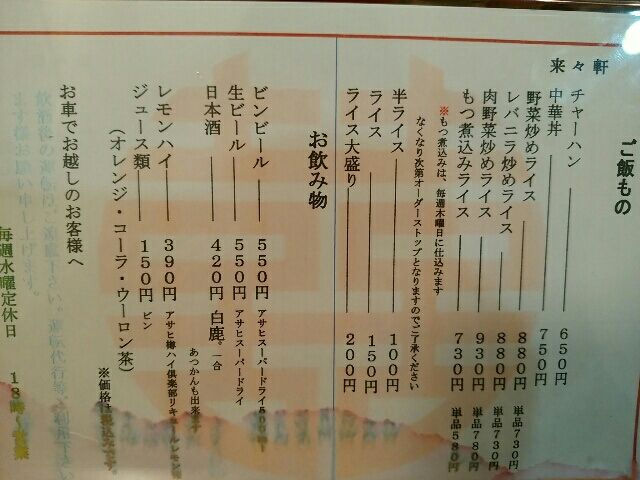 ご飯もの
来々軒
チャーハン 650円
中華丼 750円
野菜炒めライス 880円 単品730円
レバニラ炒めライス 880円 単品730円
肉野菜炒めライス 930円 単品780円
もつ煮込みライス 730円 単品580円
※もつ煮込みは、毎週木曜日に仕込みます
なくなり次第オーダーストップとなりますのでご了承ください
半ライス 100円
ライス 150円
ライス大盛り 200円
お飲み物
ビンビール 550円 アサヒスーパードライ500
生ビール 550円 アサヒスーパードライ
日本酒 420円 白鹿。一合
あつかんも出来ます
レモンハイ 390円 アサヒ樽ハイ倶楽部リキュールレモン
ジュース類 150円 ビン
(オレンジ・コーラ・ウーロン茶)
※価格は税込みです。
お車でお越しのお客様へ
毎週水曜定休日 18時